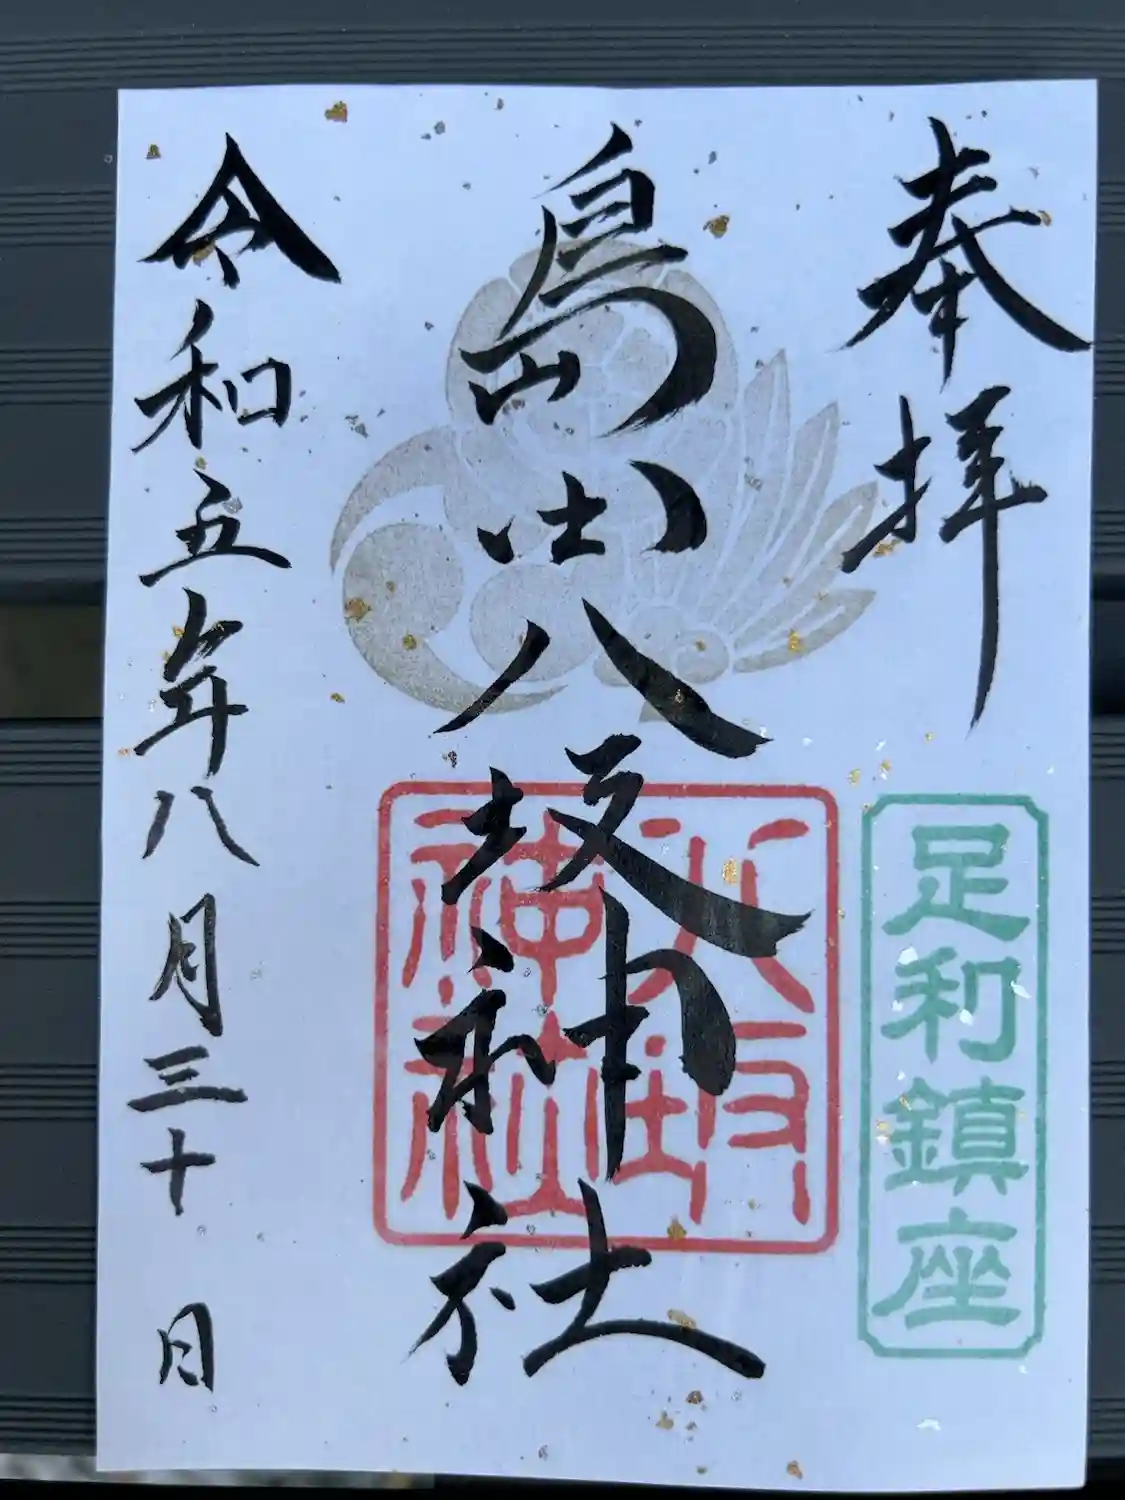 奉拝
足利鎮座
島田八坂神社
八坂
神社
令和五年八月三十日